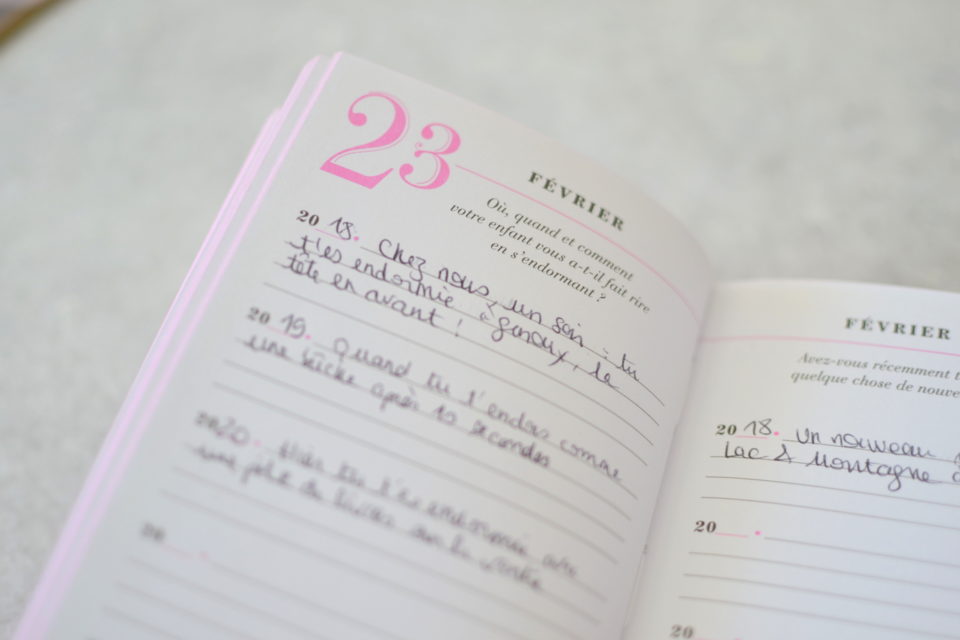 23
FÉVRIER
Où, quand et comment
votre enfant vous a-t-il fait rire
en s'endormant ?
20 18. Chez nous, un soir : tu
t'es endormie à genoux, la
tête en avant !
20 19. Quand tu t'endors comme
une bûche après 10 secondes
2020. tu t'es endormie
une pile de livres sur le
20
FÉVRIER
Avez-vous récemment
quelque chose de
20 18. Un nouveau
Lac & Montagne
20
20